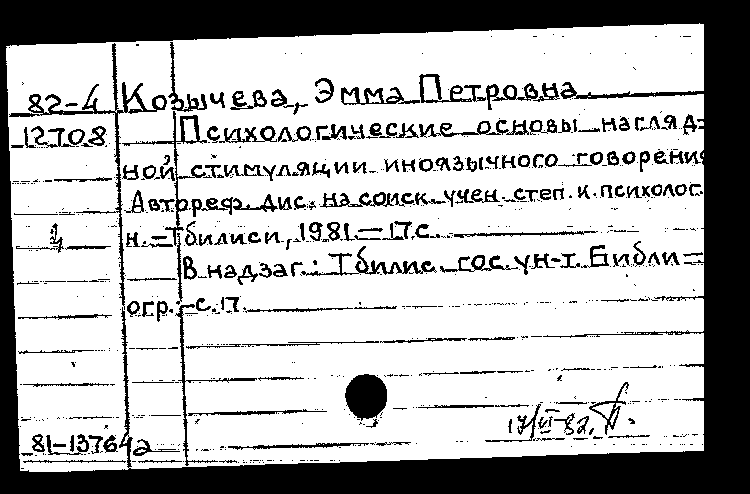 82-4 Козычева, Эмма Петровна.
12708 Психологические основы нагляд-
ной стимуляции иноязычного говорения
Автореф. дис. на соиск. учен. степ. к. психолог.
н. - Тбилиси, 1981. - 17 с.
В надзаг.: Тбилис. гос. ун-т. Библи-
огр.: с. 17
17/VI-82.
81-13764а